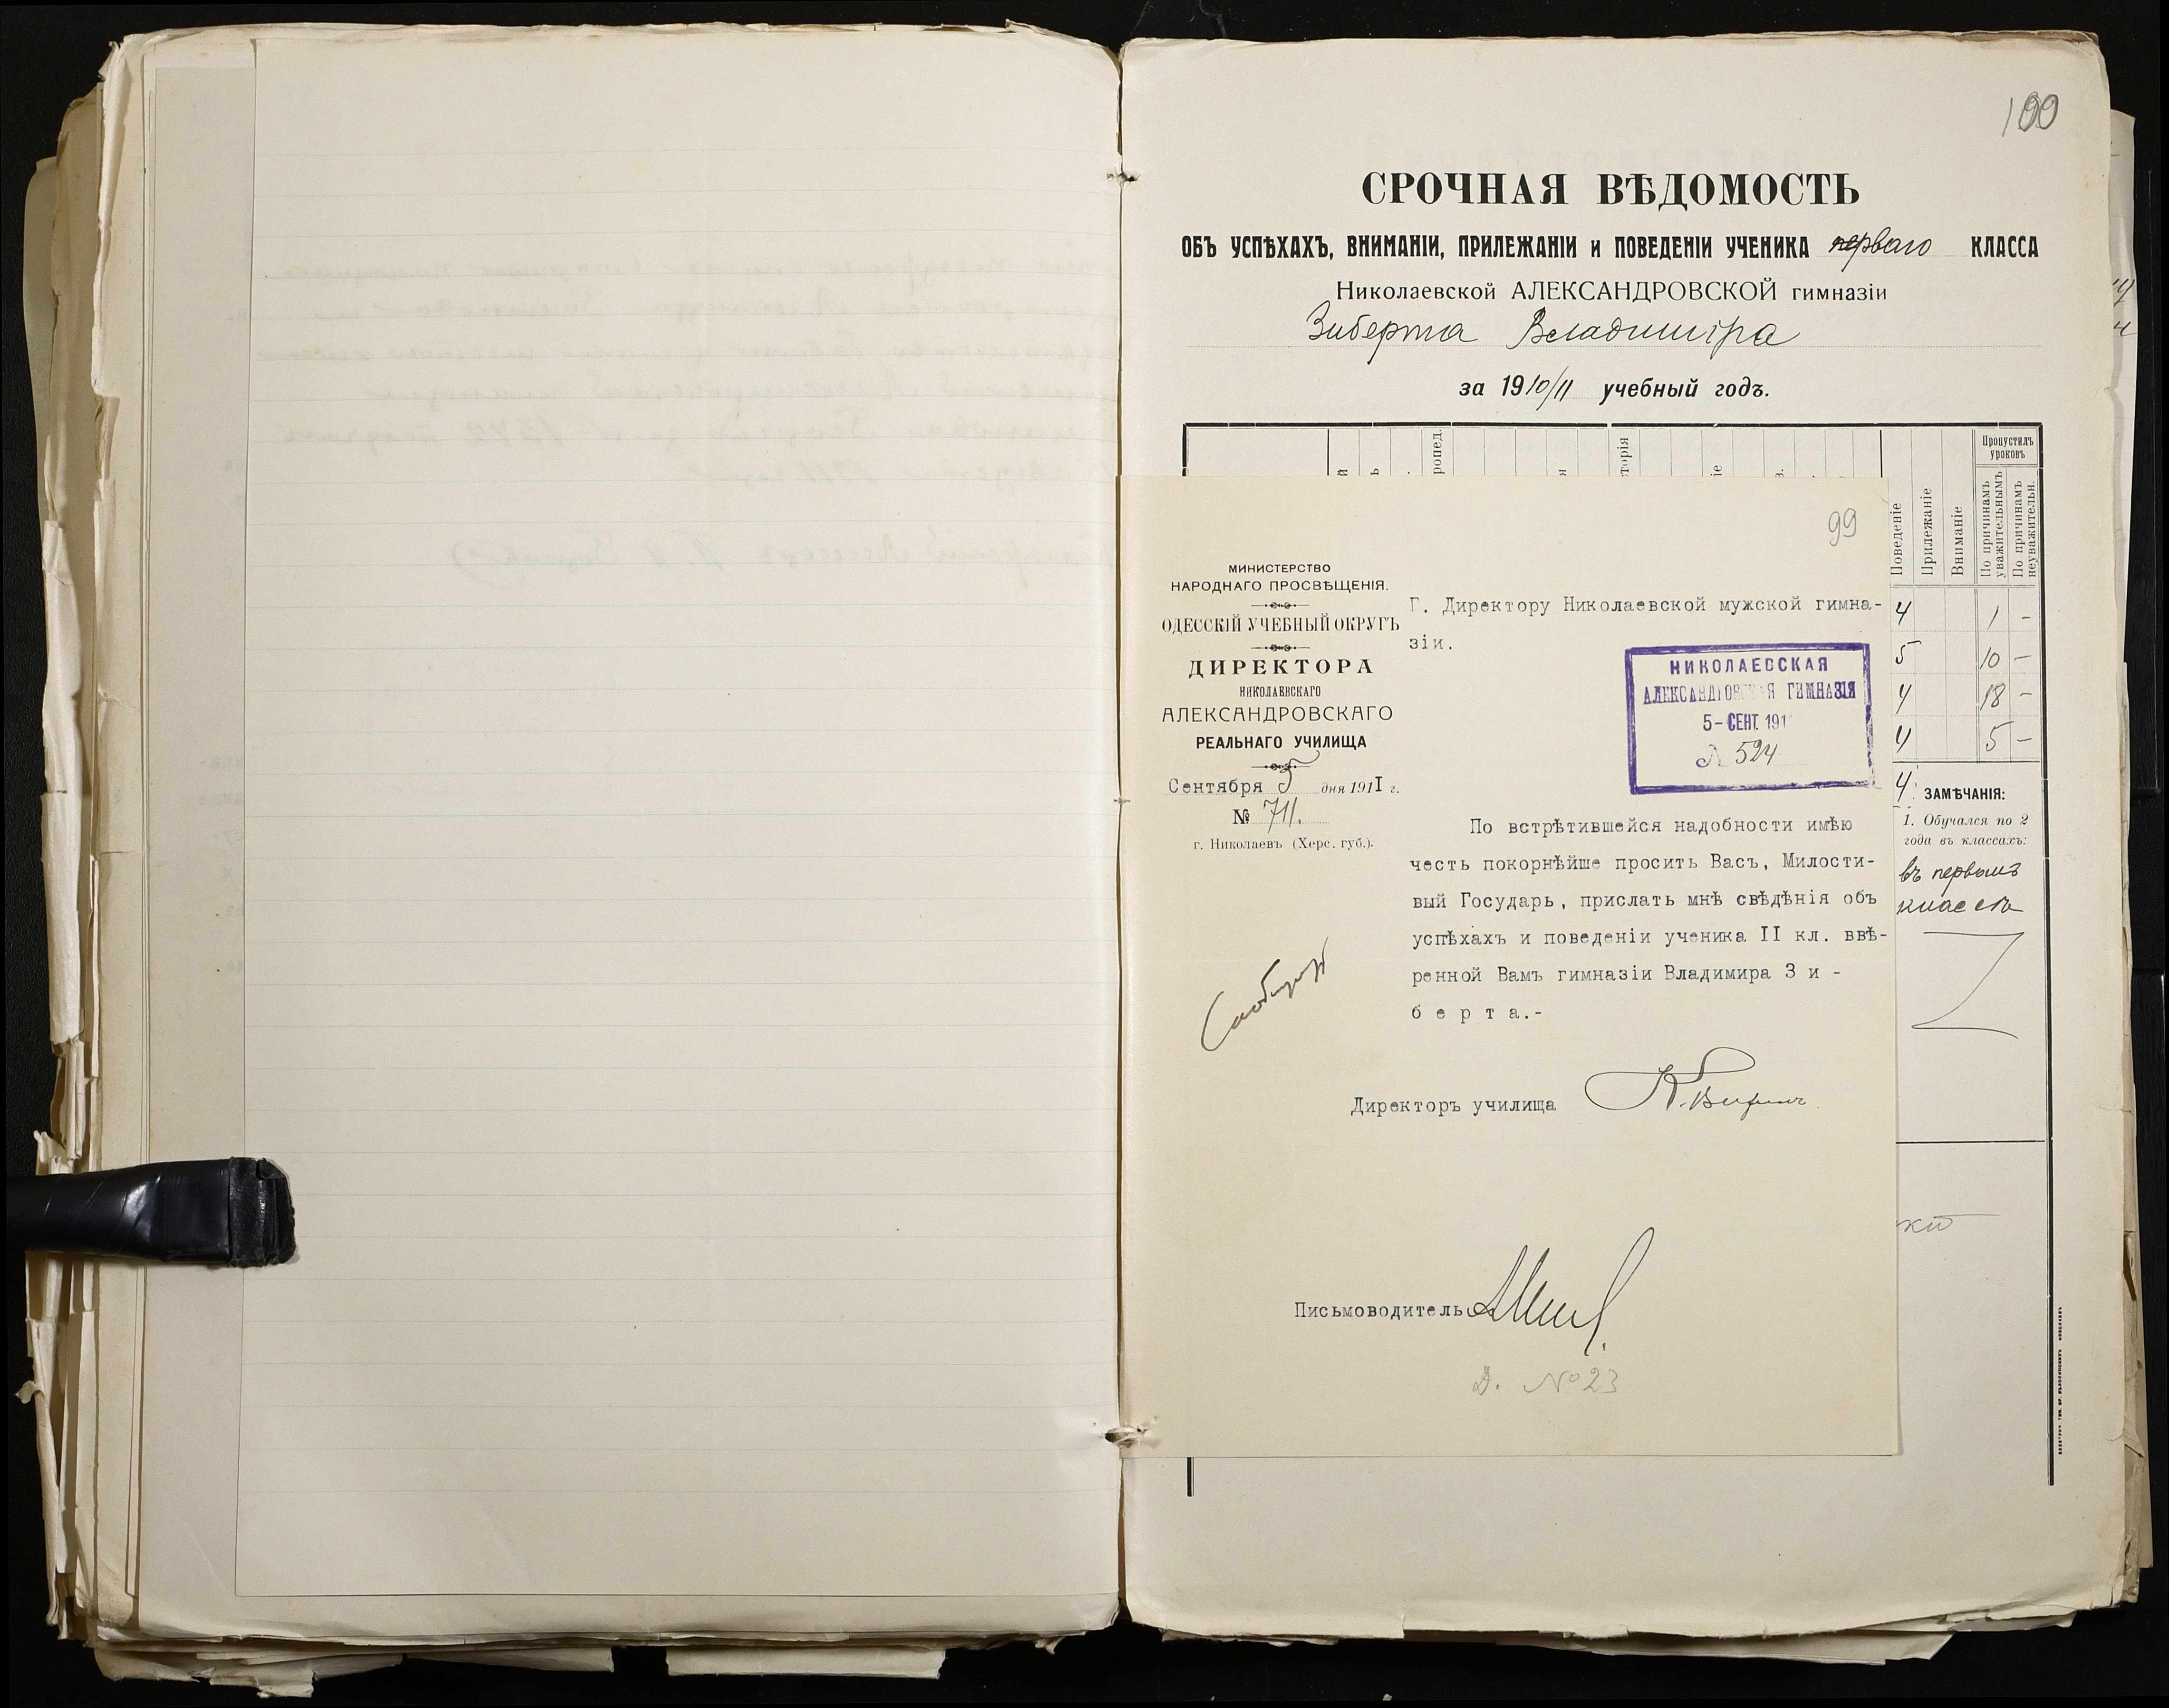 100
СРОЧНАЯ ВѢДОМОСТЬ
ОБЪ УСПѢХАХЪ, ВНИМАНІИ, ПРИЛЕЖАНІИ и ПОВЕДЕНІИ УЧЕНИКА перваго КЛАССА
Николаевской АЛЕКСАНДРОВСКОЙ гимназіи
Зиберта Владиміра
за 1910/11 учебный годъ.
Пропустилъ
уроковъ
Поведеніе
Прилежаніе
Вниманіе
По причинамъ
уважительнымъ
По причинамъ
неуважительн.
4 1 -
5 10 -
4 18 -
4 5 -
4
ЗАМѢЧАНІЯ:
1. Обучался по 2
года въ классахъ:
въ первомъ
классѣ
99
МИНИСТЕРСТВО
НАРОДНАГО ПРОСВѢЩЕНІЯ.
ОДЕССКІЙ УЧЕБНЫЙ ОКРУГЪ
ДИРЕКТОРА
НИКОЛАЕВСКАГО
АЛЕКСАНДРОВСКАГО
РЕАЛЬНАГО УЧИЛИЩА
Сентября 5 дня 1911 г.
№ 711.
г. Николаевъ (Херс. губ.).
Г. Директору Николаевской мужской гимна-
зіи.
НИКОЛАЕВСКАЯ
АЛЕКСАНДРОВСКАЯ ГИМНАЗІЯ
5- СЕНТ. 191
№ 524
По встрѣтившейся надобности имѣю
честь покорнѣйше просить Васъ, Милости-
вый Государь, прислать мнѣ свѣдѣнія объ
успѣхахъ и поведеніи ученика II кл. ввѣ-
ренной Вамъ гимназіи Владимира З и -
б е р т а.-
Директоръ училища
Письмоводитель
Д. №23